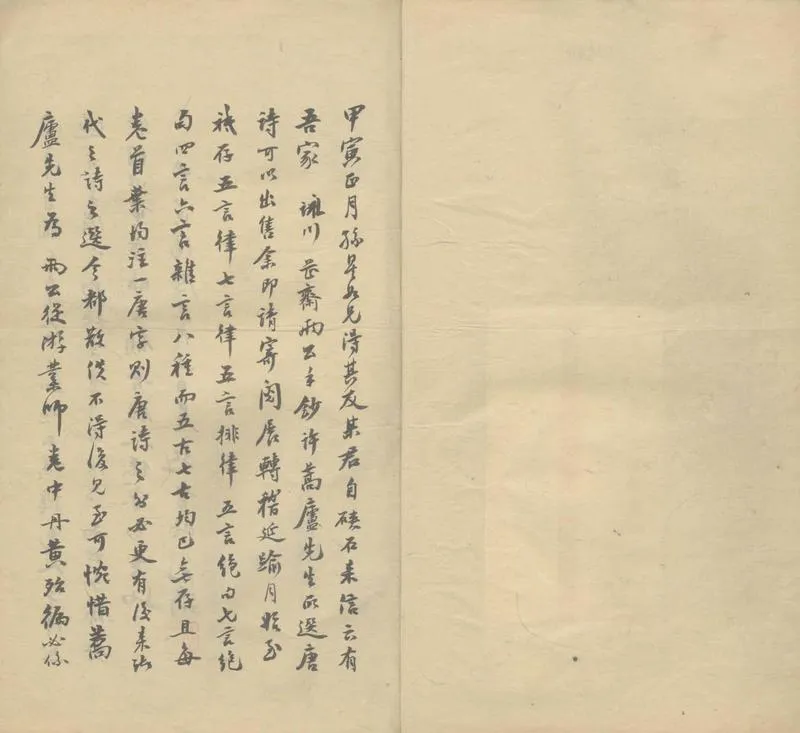 甲寅正月孫星如兄得其友某君自硤石來信云有
吾家詠川芷齋兩公手鈔許蒿廬先生所選唐
詩可以出售余即請寄閱展轉稽延踰月始至
祇存五言律七言律五言排律五言絕句七言絕
句四言六言雜言八種而五古七古均已無存且每
卷首葉均注一唐字則唐詩之外必更有後來
代之詩之選今都散佚不得復見至可惋惜蒿
廬先生為兩公從游業師卷中丹黃殆徧必係